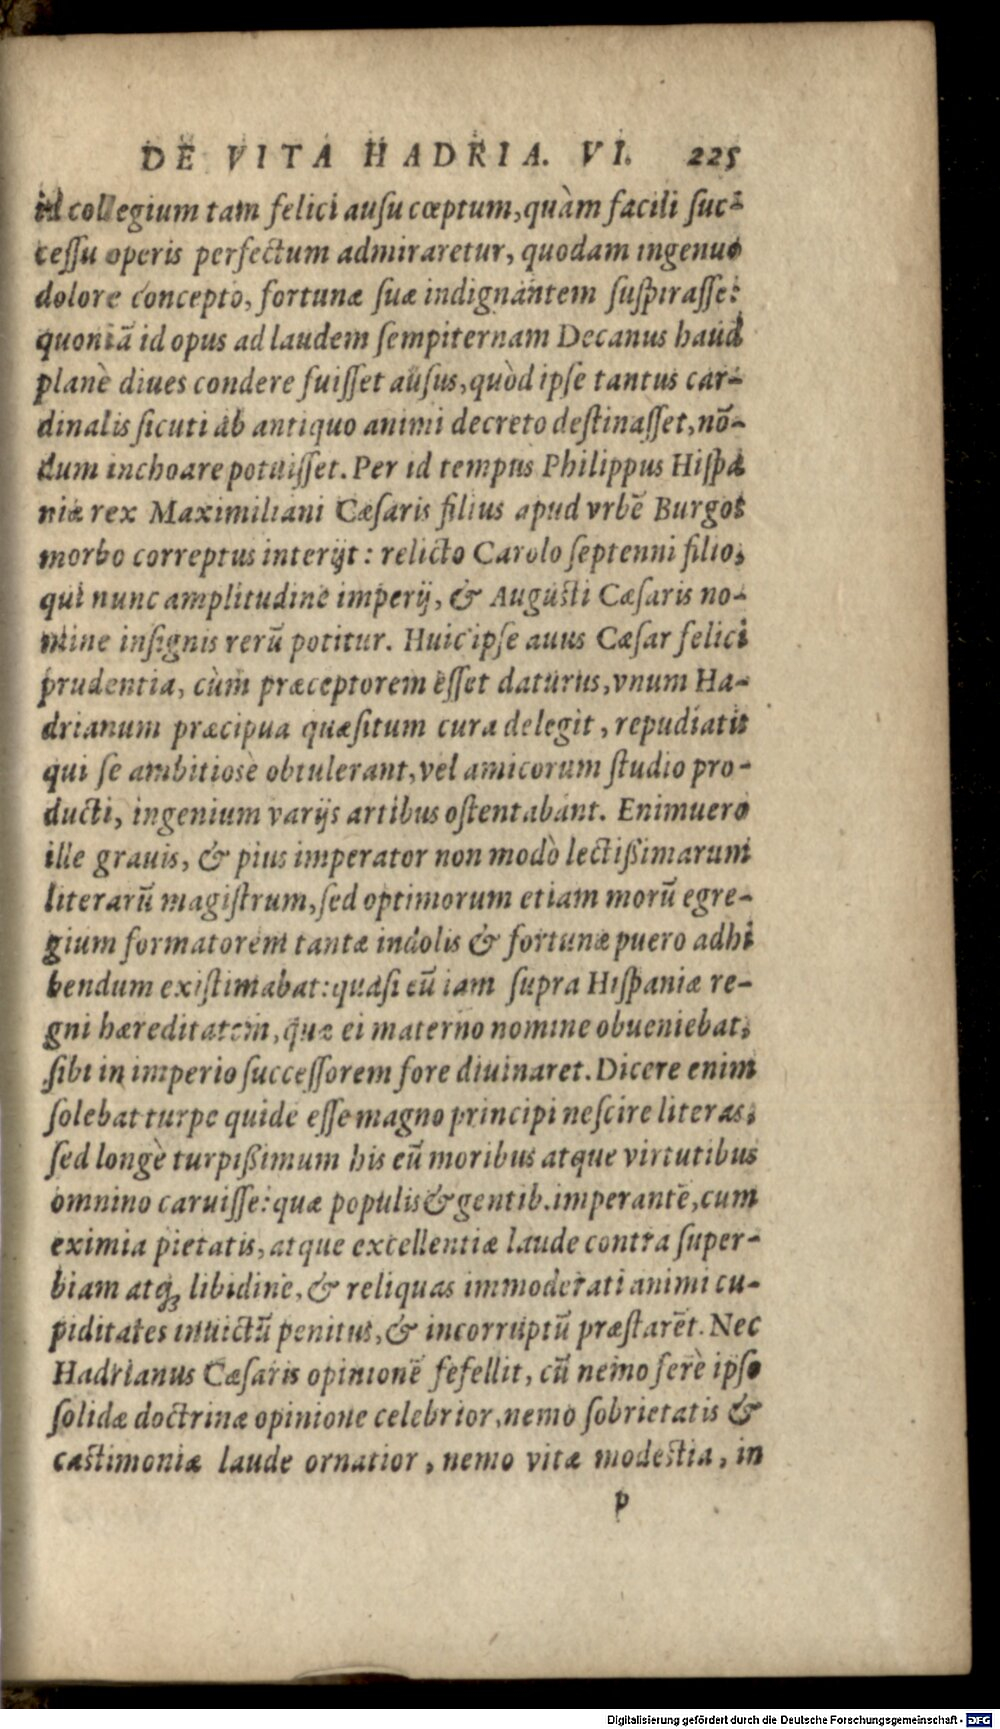 DE VITA HADRIA. VI. 225
id collegium tam felici ausu cœptum, quàm facili suc-
cessu operis perfectum admiraretur, quodam ingenuo
dolore concepto, fortunæ suæ indignantem suspirasse:
quoniã id opus ad laudem sempiternam Decanus haud
planè diues condere fuisset ausus, quòd ipse tantus car-
dinalis sicuti ab antiquo animi decreto destinasset, nõ-
dum inchoare potuisset. Per id tempus Philippus Hispa
niæ rex Maximiliani Cæsaris filius apud vrbẽ Burgos
morbo correptus interijt: relicto Carolo septenni filio,
qui nunc amplitudine imperij, & Augusti Cæsaris no-
mine insignis rerũ potitur. Huic ipse auus Cæsar felici
prudentia, cùm præceptorem esset daturus, vnum Ha-
drianum præcipua quæsitum cura delegit, repudiatis
qui se ambitiosè obtulerant, vel amicorum studio pro-
ducti, ingenium varijs artibus ostentabant. Enimuero
ille grauis, & pius imperator non modò lectißimarum
literarũ magistrum, sed optimorum etiam morũ egre-
gium formatorem tantæ indolis & fortunæ puero adhi
bendum existimabat: quasi eũ iam supra Hispaniæ re-
gni hæreditatem, quæ ei materno nomine obueniebat,
sibi in imperio successorem fore diuinaret. Dicere enim
solebat turpe quide esse magno principi nescire literas,
sed longè turpißimum his eũ moribus atque virtutibus
omnino caruisse: quæ populis & gentib. imperantẽ, cum
eximia pietatis, atque excellentiæ laude contra super-
biam atq; libidinẽ, & reliquas immoderati animi cu-
piditates inuictũ penitus, & incorruptũ præstarẽt. Nec
Hadrianus Cæsaris opinionẽ fefellit, cũ nemo ferè ipso
solidæ doctrinæ opinione celebrior, nemo sobrietatis &
castimoniæ laude ornatior, nemo vitæ modestia, in
p
Digitalisierung gefördert durch die Deutsche Forschungsgemeinschaft - DFG